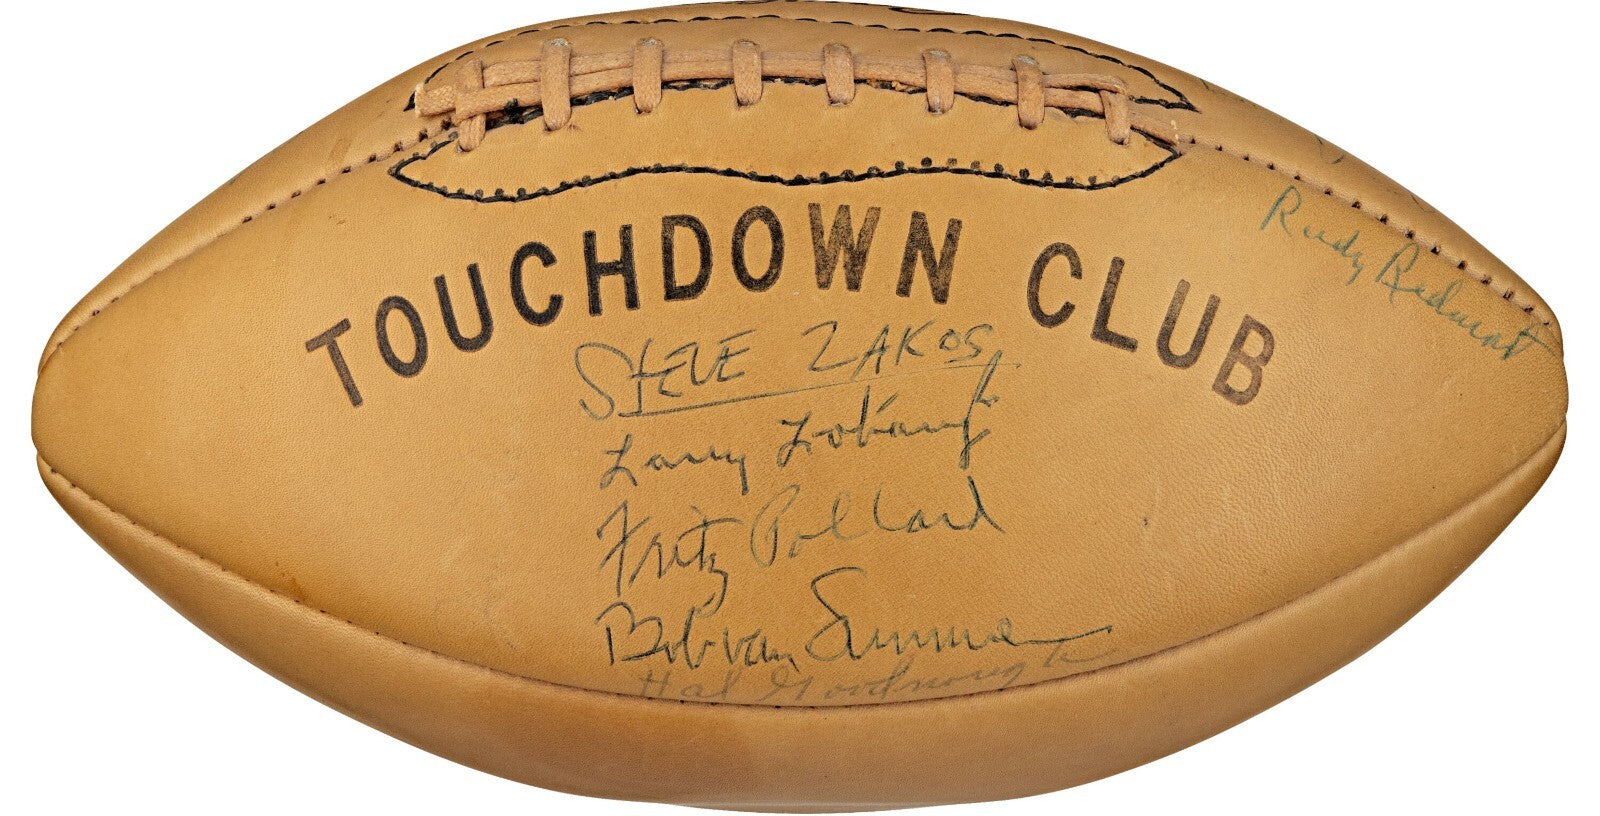 TOUCHDOWN CLUB
Rudy Redmont
STEVE ZAKOS
Larry Lobaugh
Fritz Pollard
Bob van Summer
Hal Goodnough